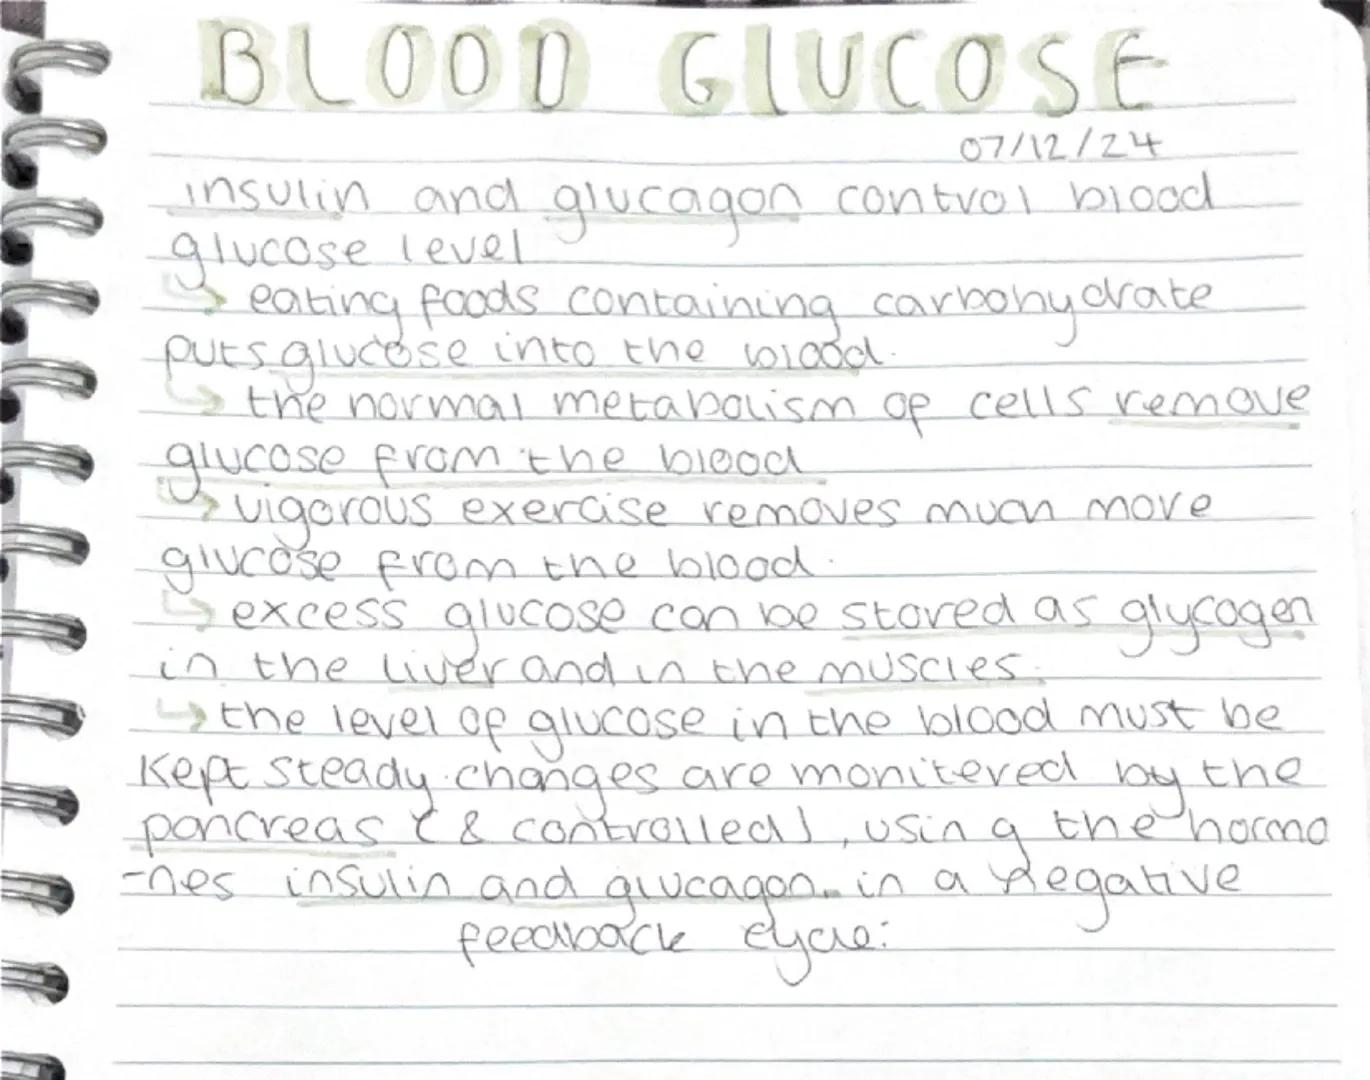 BLOOD GLUCOSE
07/12/24
insulin and glucagon control blood
glucose level
↳ eating foods containing carbohydrate
puts glucose into the blood.
↳ the normal metabolism of cells remove
glucose from the blood
↳ vigorous exercise removes much more
glucose from the blood.
↳ excess glucose can be stored as glycogen
in the liver and in the muscles.
↳ the level of glucose in the blood must be
kept steady. changes are monitered by the
pancreas (& controlled), using the hormo
-nes insulin and glucagon. in a negative
feedback cycle: